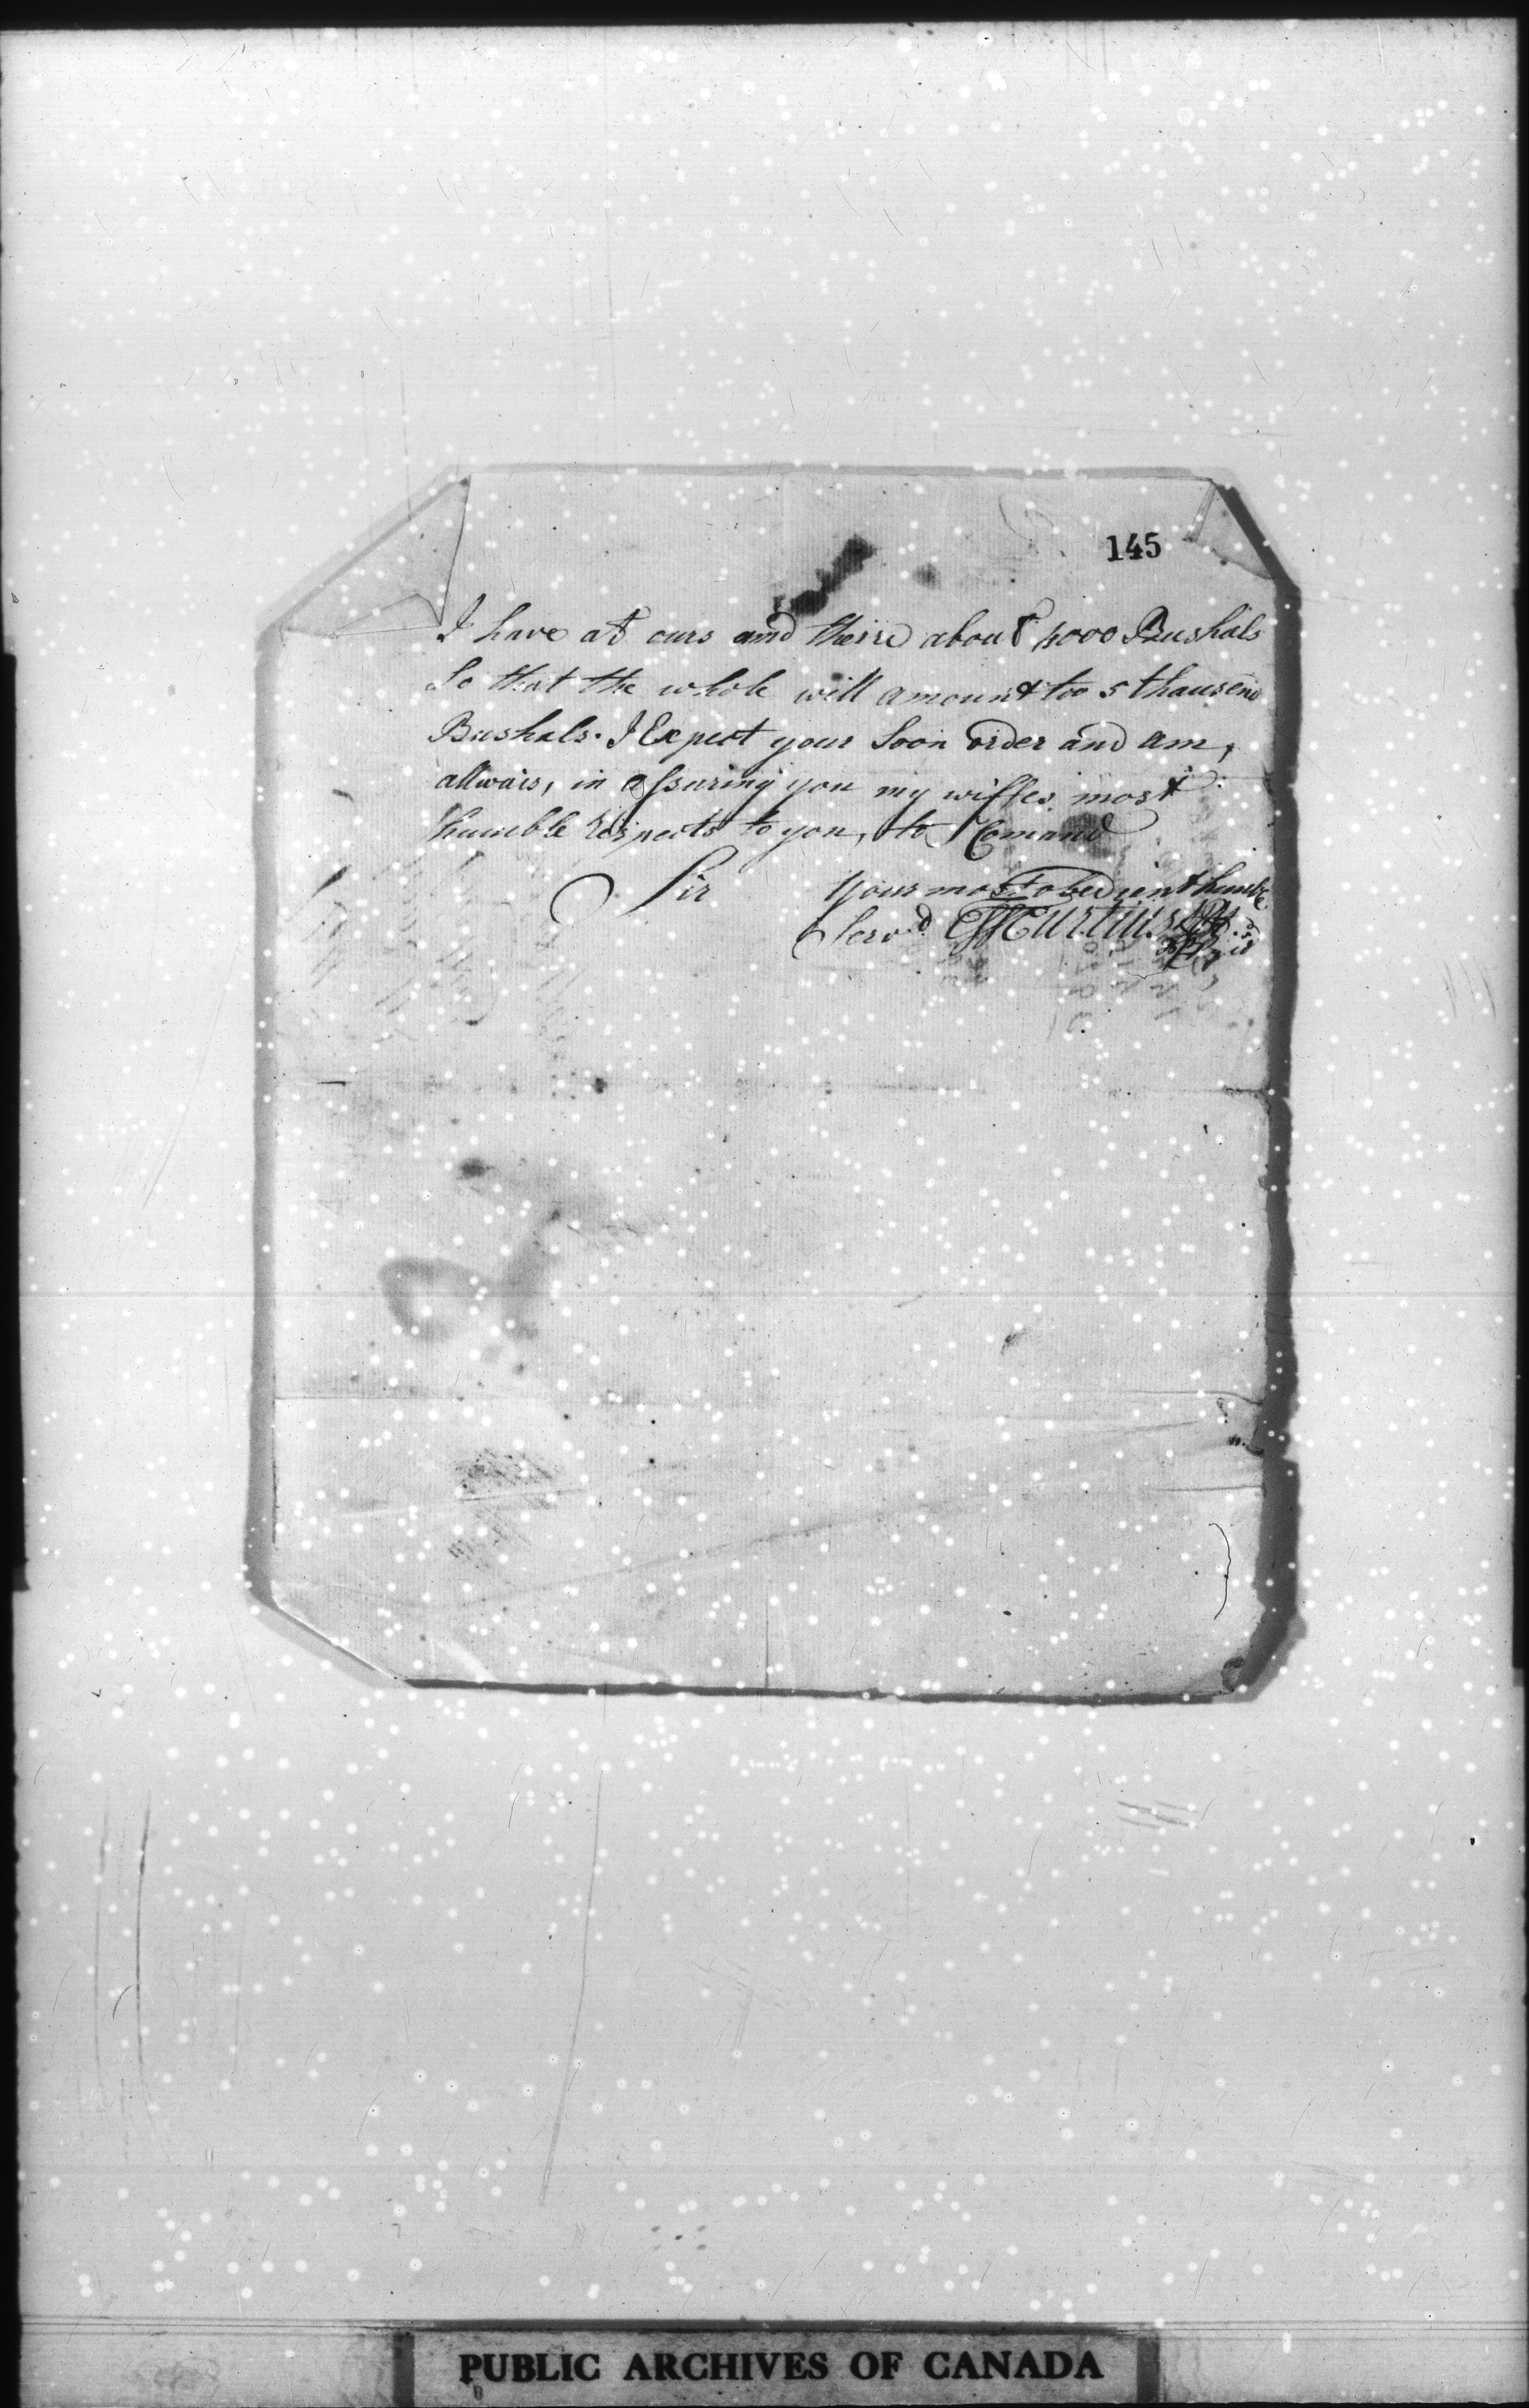 145
I have at ours and theire about 4000 Bushals
So that the whole will amount too 5 thausend
Bushals. I Expect your Soon order and am,
allwais, in assuring you my wiffes most
humble Respects to you, to Comand
Sir your most obedient humble
Serv.d
PUBLIC ARCHIVES OF CANADA